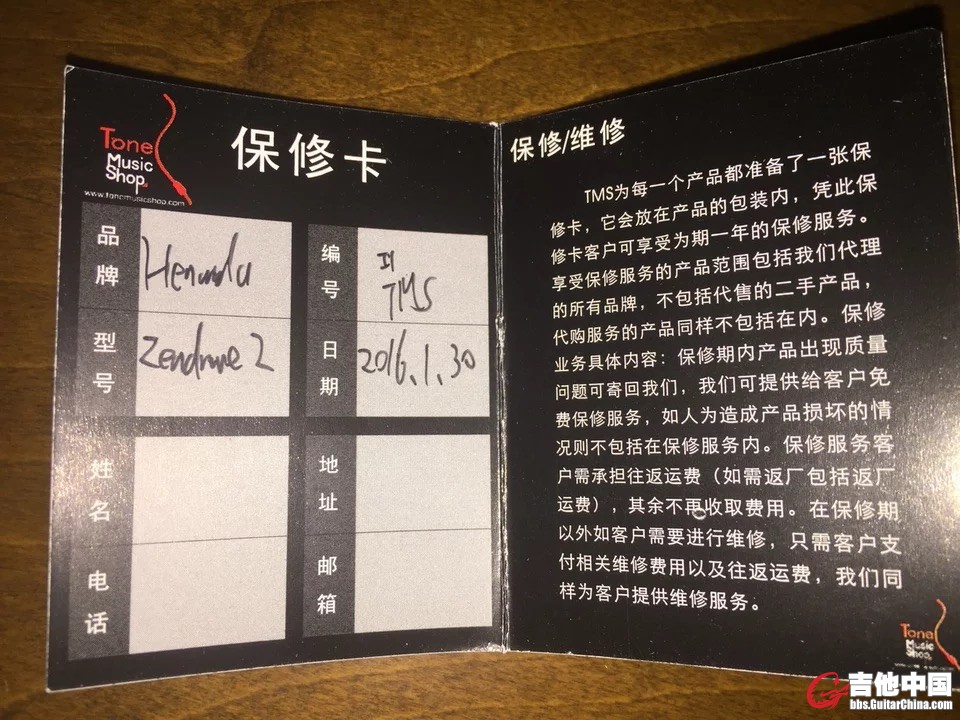 Tone
Music
Shop
www.tonemusicshop.com
保修卡
品牌
编号
TMS
型号
Zendrive 2
日期
2016.1.30
姓名
地址
电话
邮箱
保修/维修
TMS为每一个产品都准备了一张保
修卡，它会放在产品的包装内，凭此保
修卡客户可享受为期一年的保修服务。
享受保修服务的产品范围包括我们代理
的所有品牌，不包括代售的二手产品，
代购服务的产品同样不包括在内。保修
业务具体内容：保修期内产品出现质量
问题可寄回我们，我们可提供给客户免
费保修服务，如人为造成产品损坏的情
况则不包括在保修服务内。保修服务客
户需承担往返运费（如需返厂包括返厂
运费），其余不再收取费用。在保修期
以外如客户需要进行维修，只需客户支
付相关维修费用以及往返运费，我们同
样为客户提供维修服务。
Tone
Music
Shop
吉他中国
bbs.GuitarChina.com